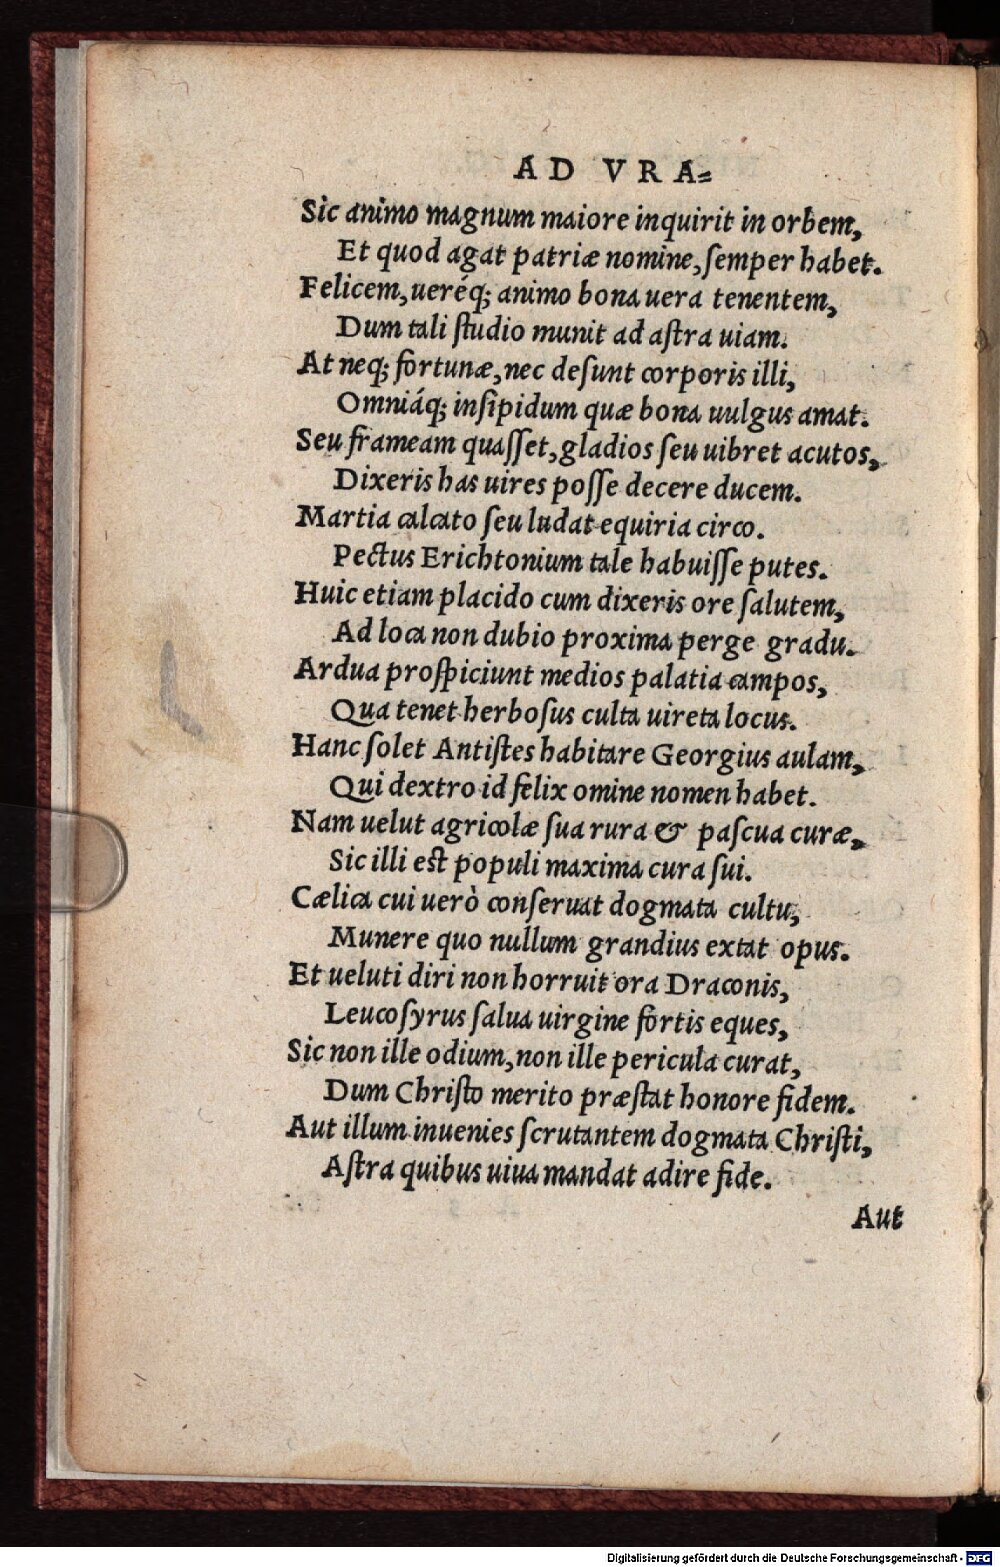 AD VRA=
Sic animo magnum maiore inquirit in orbem,
Et quod agat patriæ nomine, ſemper habet.
Felicem, ueréq; animo bona uera tenentem,
Dum tali ſtudio munit ad aſtra uiam.
At neq; fortunæ, nec deſunt corporis illi,
Omniáq; inſipidum quæ bona uulgus amat.
Seu frameam quaſſet, gladios ſeu uibret acutos,
Dixeris has uires poſſe decere ducem.
Martia calcato ſeu ludat equiria circo.
Pectus Erichtonium tale habuiſſe putes.
Huic etiam placido cum dixeris ore ſalutem,
Ad loca non dubio proxima perge gradu.
Ardua proſpiciunt medios palatia campos,
Qua tenet herboſus culta uireta locus.
Hanc ſolet Antiſtes habitare Georgius aulam,
Qui dextro id felix omine nomen habet.
Nam uelut agricolæ ſua rura & paſcua curæ,
Sic illi eſt populi maxima cura ſui.
Cælica cui uerò conſeruat dogmata cultu,
Munere quo nullum grandius extat opus.
Et ueluti diri non horruit ora Draconis,
Leucoſyrus ſalua uirgine fortis eques,
Sic non ille odium, non ille pericula curat,
Dum Chriſto merito præſtat honore fidem.
Aut illum inuenies ſcrutantem dogmata Chriſti,
Aſtra quibus uiua mandat adire fide.
Aut
Digitalisierung gefördert durch die Deutsche Forschungsgemeinschaft - DFG